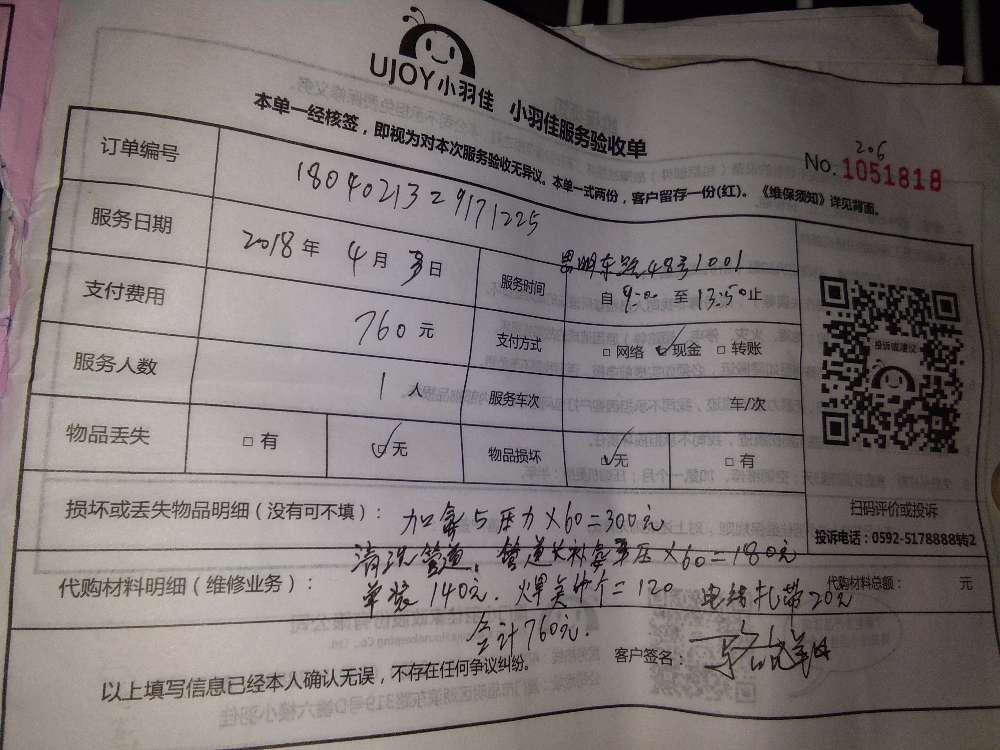 UJOY小羽佳 小羽佳服务验收单
本单一经核签，即视为对本次服务验收无异议。本单一式两份，客户留存一份(红)。《维保须知》详见背面。
206
No. 1051818
订单编号 1804021329171225
服务日期 2018年 4月 日
东路48号1001
服务时间 自 9:00 至 13:50止
支付费用 760元
支付方式 □网络 ☑现金 □转账
服务人数 1人
服务车次 车/次
物品丢失 □有 ☑无
物品损坏 ☑无 □有
投诉或建议
扫码评价或投诉
投诉电话：0592-5178888转2
损坏或丢失物品明细（没有可不填）： 加氟5压力×60=300元
清洗管道，管道长补氟 压×60=180元
代购材料明细（维修业务）： 单装140元. 焊 =120 电线扎带20元
代购材料总额： 元
合计760元.
以上填写信息已经本人确认无误，不存在任何争议纠纷。
客户签名：